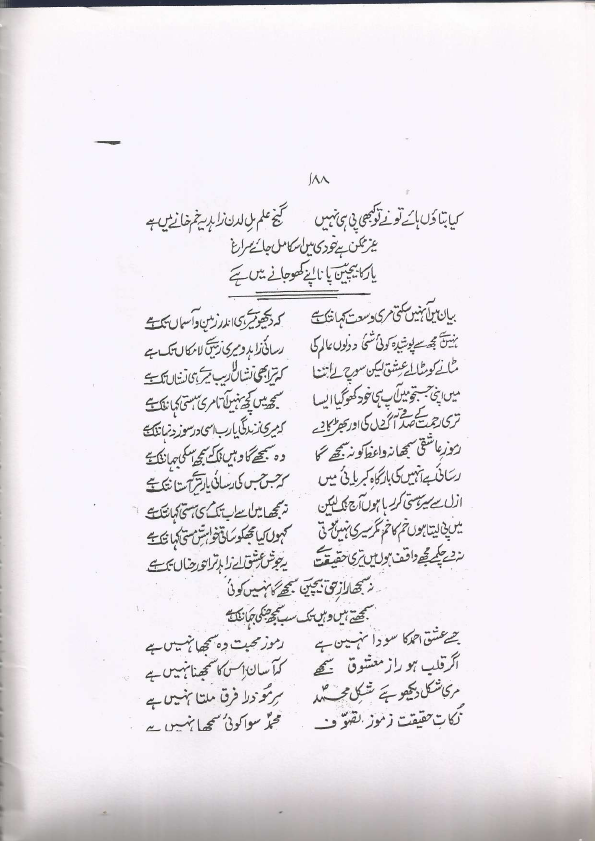 ۱۸۸
کیا بتاؤں ہائے تو نے تو کبھی پی ہی نہیں گنج علم لدن زاہد یہ خم خانے میں ہے
غیر ممکن ہے خودی میں اسکا مل جائے سراغ
یار کا بیچین پانا اپنے کھو جانے میں ہے
بیان میں آ نہیں سکتی مری وسعت کہانتک ہے کہ دیکھو میرے ہی اندر زمین و آسماں تک ہے
نہیں ہے مجھ سے پوشیدہ کوئی شئی دولوں عالم کی رسائی زاہدو میری زمیں سے لامکاں تک ہے
مٹانے کو مٹا اے عشق لیکن سوچ لے اتنا کہ ترا بھی نشاں لا ریب میرے ہی نشاں تک ہے
میں اپنی جستجو میں آپ ہی خود کھو گیا ایسا سمجھ میں کچھ نہیں آتا مری ہستی کہانتک ہے
تری رحمت کے صدقے آگ دل کی اور بھڑکا دے کہ میری زندگی یارب اسی درد سوز تک ہے
رموز عاشقی سمجھا نہ واعظ کو نہ سمجھے گا وہ سمجھے گا وہیں تک کہ سمجھ اسکی جہانتک ہے
رسائی ہے انہیں کی بارگاہ کبریائی میں کہ جس جس کی رسائی یار تیرے آستانتک ہے
ازل سے سیر ہستی کر رہا ہوں آج تک لیکن نہ سمجھا میں اسے اب تک مری ہستی کہانتک ہے
میں پی لیتا ہوں خم کا خم مگر سیری نہیں ہوتی کہوں کیا مجھکو ساقی خواہش مستی کہانتک ہے
نہ دے چکمے مجھے واقف ہوں میں تیری حقیقت سے یہ جوش عشق اے زاہد ترا حور جناں تک ہے
نہ سمجھا راز حق بیچین سمجھے گا نہیں کوئی
سمجھتے ہیں وہیں تک سب سمجھ جنکی جہانتک ہے
جسے عشق احمد کا سودا نہیں ہے رموز محبت وہ سمجھا نہیں ہے
اگر قلب ہو راز معشوق سمجھے کہ آسان اس کا سمجھنا نہیں ہے
مری شکل دیکھو ہے شکل محمدؐ سر مو ذرا فرق ملتا نہیں ہے
نکات حقیقت رموز تصوّف محمدؐ سوا کوئی سمجھا نہیں ہے